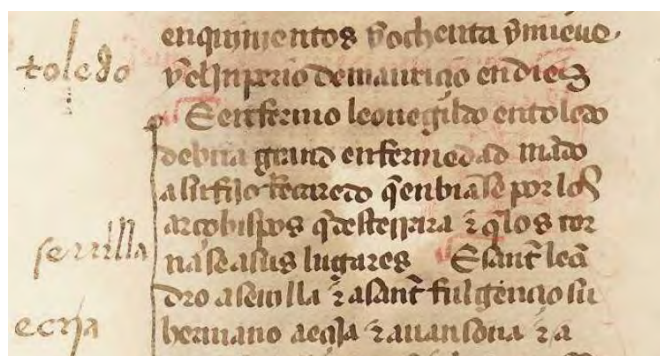 toledo
seuilla
ecija
enqujnientos yochenta ynueue
yel Inperio demauriçio en diez
E enfermo leouegildo entoledo
debna grand enfermedad mãdo
asufijo Recaredo q̃ enbiase por los
arçobispos q̃ desterrara ⁊ q̃ los tor
nase asus lugares E sant leã
dro aseuilla ⁊ asant fulgençio su
hermano aeçija ⁊ auansona ⁊ a